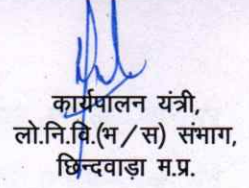 कार्यपालन यंत्री,
लो.नि.वि.(भ/स) संभाग,
छिन्दवाड़ा म.प्र.